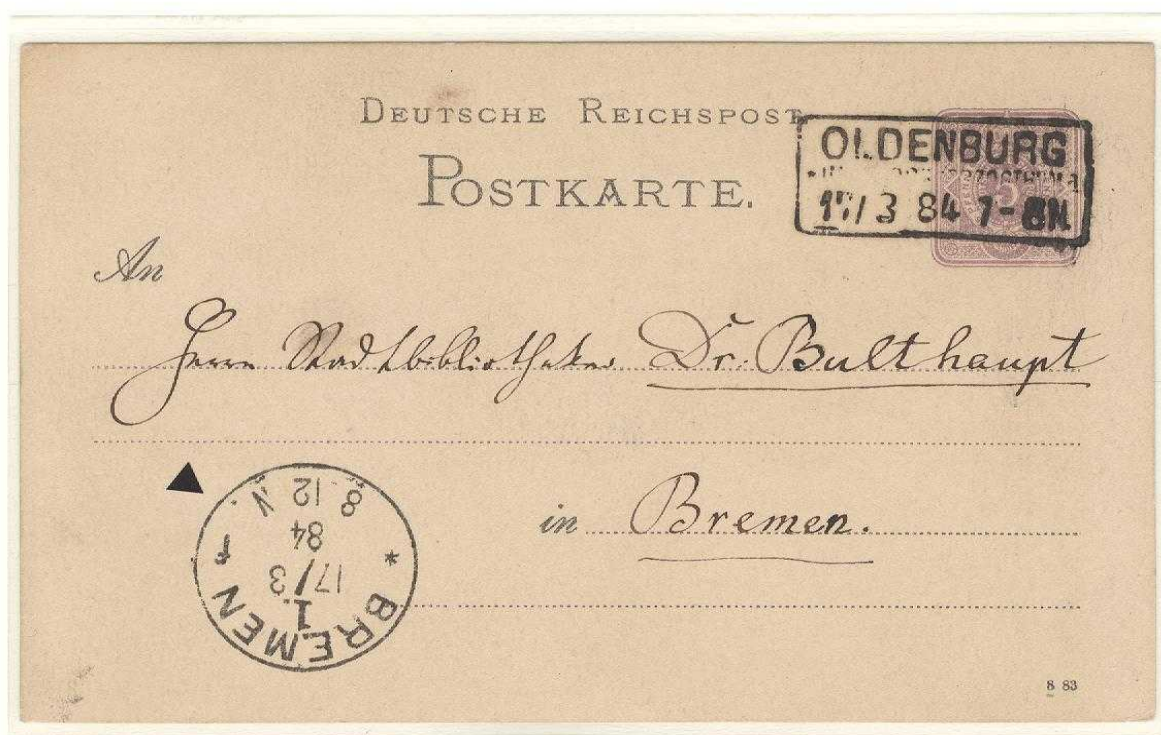 DEUTSCHE REICHSPOST
POSTKARTE.
OLDENBURG
17/3 84 7-8N.
An
Herrn Stadtbibliothekar Dr. Bulthaupt
in Bremen.
BREMEN
1.
17/3
84
8 12 N.
8 83